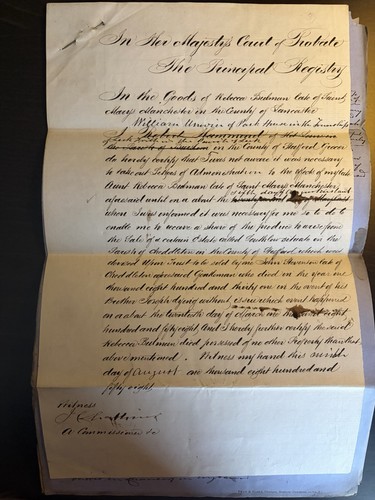 In Her Majesty's Court of Probate
The Principal Registry
In the Goods of Rebecca Bedman late of Saint
Marys Manchester in the County of Lancaster
William Unwin of Park House in the Township
I
in the County of Stafford
do hereby certify that I was not aware it was necessary
to take out Letters of Administration to the Effects of my late
Aunt Rebecca Bedman late of Saint Marys Manchester
aforesaid until on or about the
when I was informed it was necessary for me so to do to
enable me to receive a share of the produce to arise from
the Sale of a certain Estate called situate in the
Parish of Cheddleton in the County of Stafford which was
devised Upon Trust to be sold by one John Stevenson late of
Cheddleton aforesaid Gentleman who died in the year one
thousand eight hundred and thirty one in the event of his
Brother Joseph dying without issue which event happened
on or about the twentieth day of one thousand eight
hundred and fifty eight And I hereby further certify the said
Rebecca Bedman died possessed of no other Property than that
above mentioned. Witness my hand this
day of August one thousand eight hundred and
fifty eight
Witness
A Commissioner &c